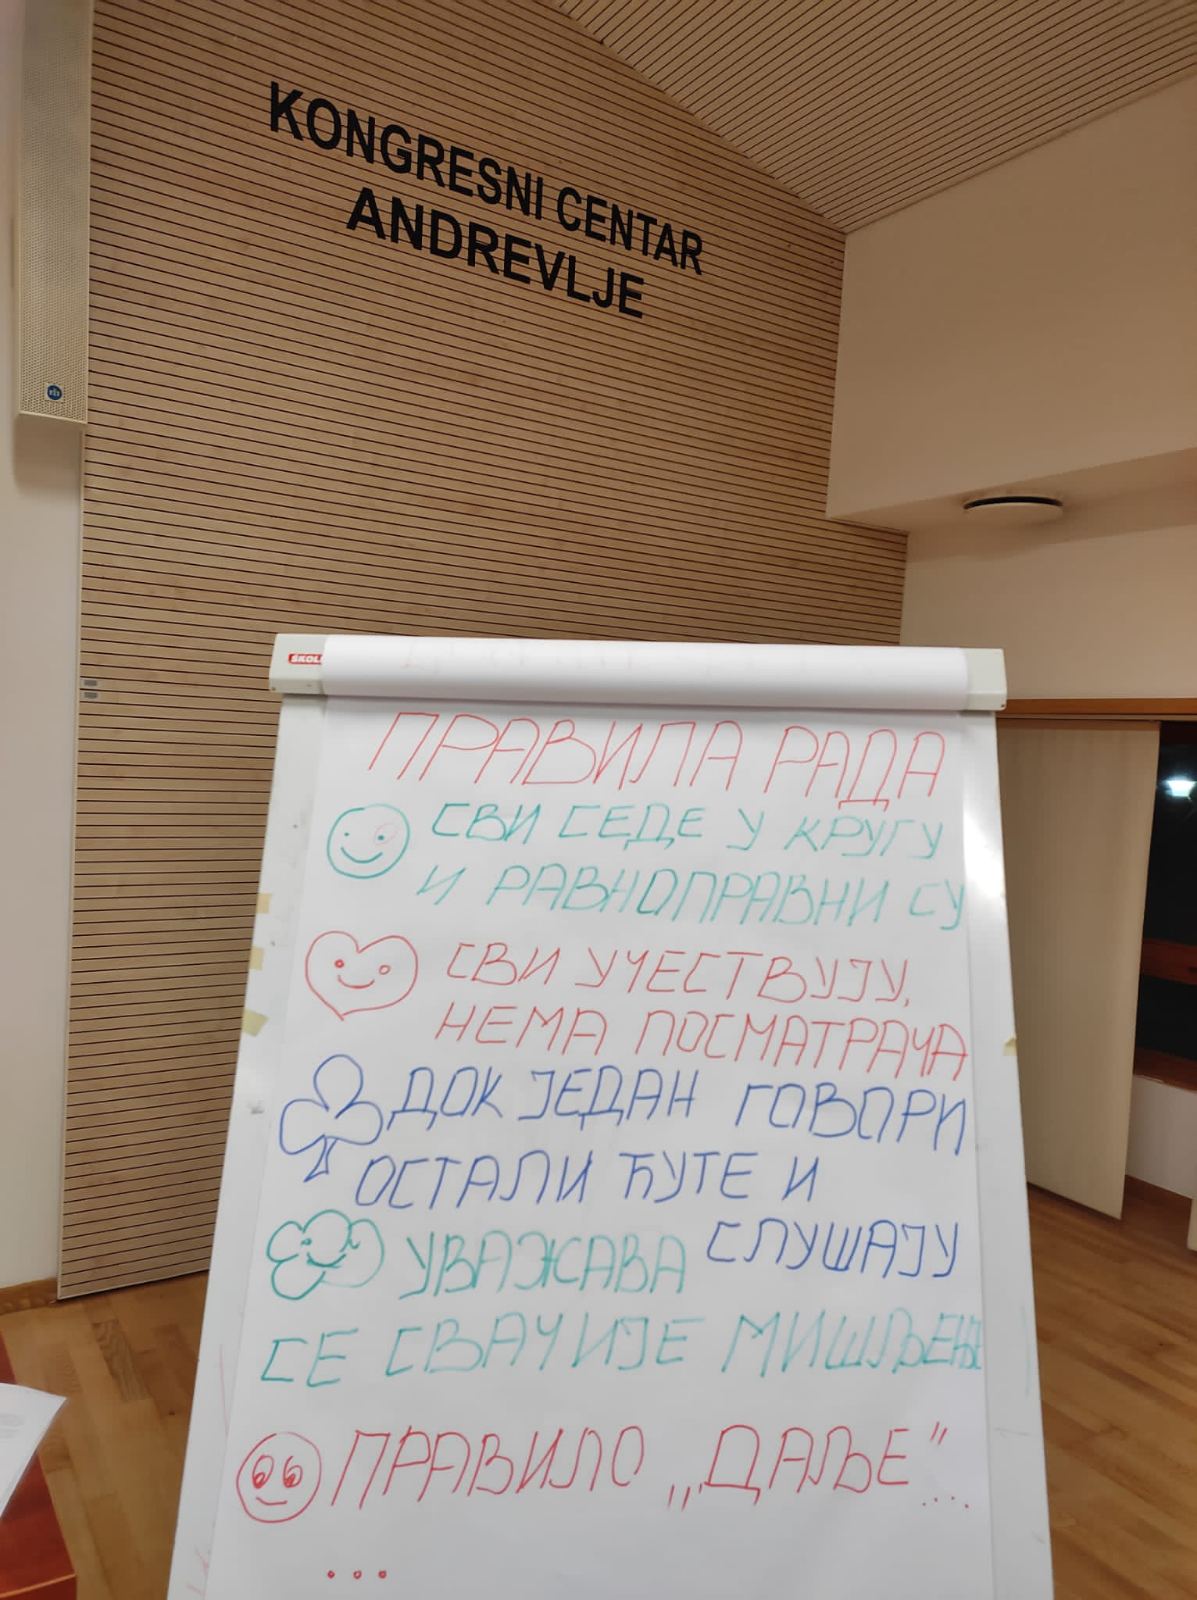 KONGRESNI CENTAR
ANDREVLJE
ŠKOL
ПРАВИЛА РАДА
СВИ СЕДЕ У КРУГУ
И РАВНОПРАВНИ СУ
СВИ УЧЕСТВУЈУ,
НЕМА ПОСМАТРАЧА
ДОК ЈЕДАН ГОВОРИ
ОСТАЛИ ЋУТЕ И
СЛУШАЈУ
УВАЖАВА
СЕ СВАЧИЈЕ МИШЉЕЊЕ
ПРАВИЛО „ДАЉЕ"....
...